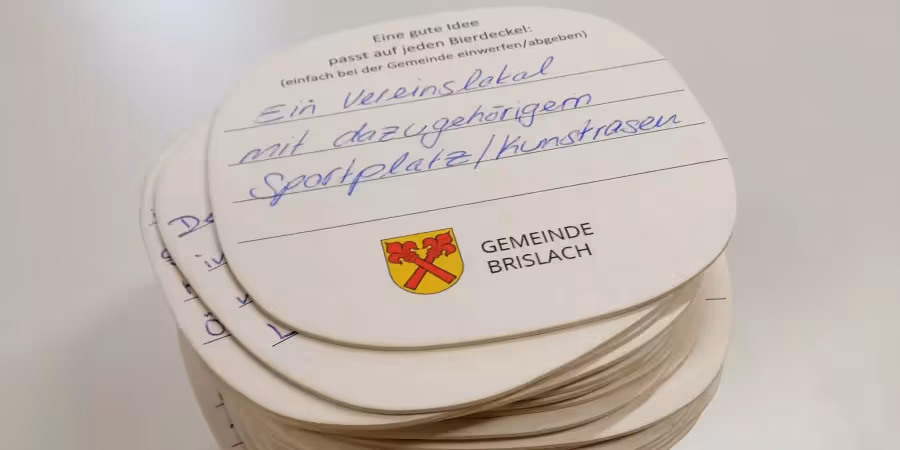 Eine gute Idee
passt auf jeden Bierdeckel:
(einfach bei der Gemeinde einwerfen/abgeben)
Ein Vereinslokal
mit dazugehörigem
Sportplatz/Kunstrasen
GEMEINDE
BRISLACH